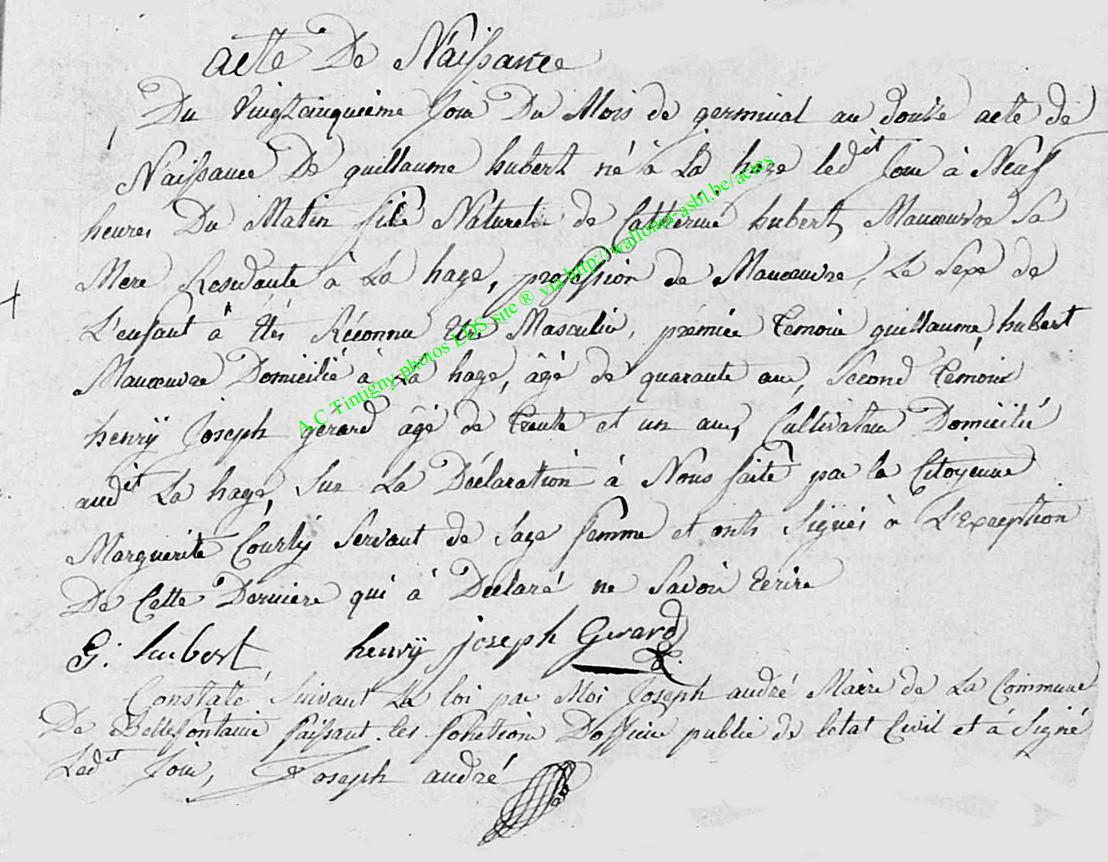 acte De Naissance
Du vingtcinquieme Jour Du Mois de germinal an douze acte de
Naissance De guillaume hubert né à La hage ledit Jour à Neuf
heures Du Matin fils Naturele de Catherine hubert Manœuvre Sa
Mere Residante à La hage, profession de Manœuvre, Le Sexe de
L'enfant à Etés Réconnu Etre Masculin, premiée Temoin guillaume hubert
Manœuvre Domicilié à La hage, âgé de quarante ans, Second Témoin
henrÿ Joseph gérard âgé de trente et un ans, Cultivateur Domicilié
audit La hage, Sur La Déclaration à Nous faite par la Citoyenne
Marguerite Courtij Servant de Sage femme et onts Signés à L'Exception
De Cette Derniere qui à Déclaré ne Savoir Ecrire
G: hubert henrÿ joseph Gerard
Constaté Suivant La loi par Moi Joseph andré Maire de La Commune
De Bellefontaine faissant les fonction D'officier public de letat Civil et à Signé
Ledit Jour, Joseph andré
A.C Tintigny photos EDS site ® via http://wallonia-asbl.be/actes